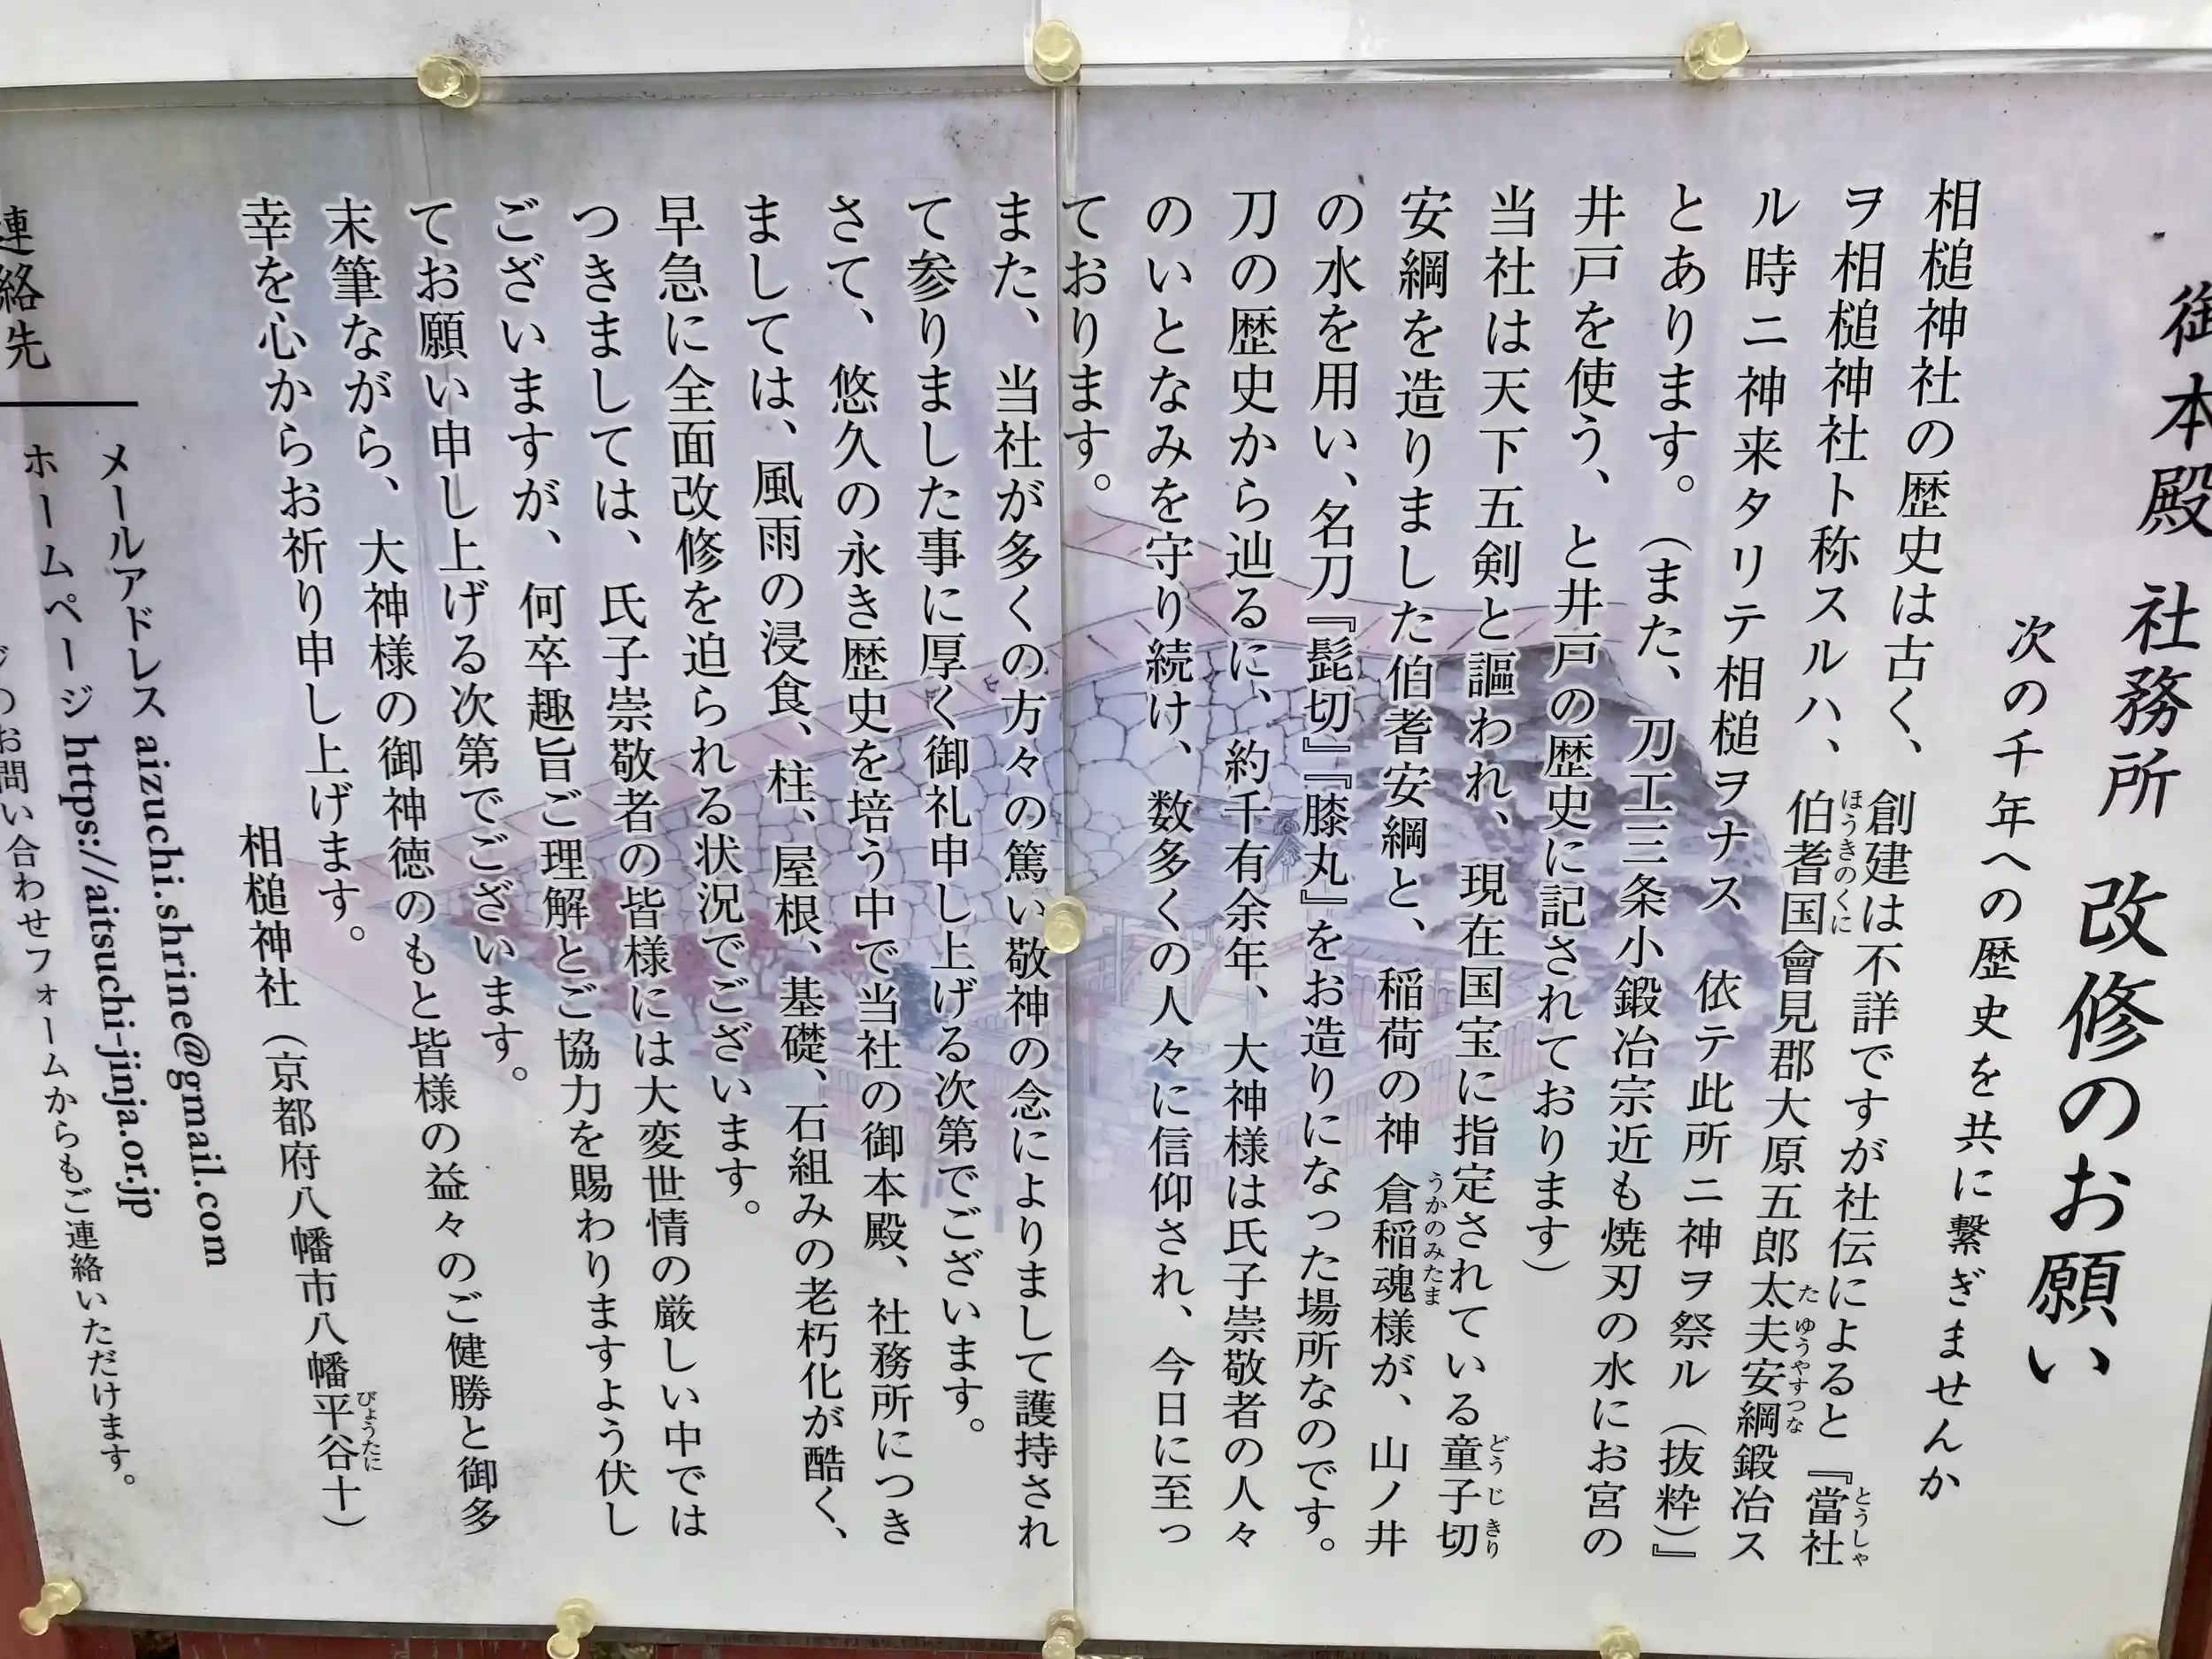 御本殿 社務所 改修のお願い
次の千年への歴史を共に繋ぎませんか
相槌神社の歴史は古く、創建は不詳ですが社伝によると『當社
ヲ相槌神社ト称スルハ、伯耆国會見郡大原五郎太夫安綱鍛冶ス
ル時ニ神来タリテ相槌ヲナス 依テ此所ニ神ヲ祭ル（抜粋）』
とあります。（また、刀工三条小鍛冶宗近も焼刃の水にお宮の
井戸を使う、と井戸の歴史に記されております）
当社は天下五剣と謳われ、現在国宝に指定されている童子切
安綱を造りました伯耆安綱と、稲荷の神 倉稲魂様が、山ノ井
の水を用い、名刀『髭切』『膝丸』をお造りになった場所なのです。
刀の歴史から辿るに、約千有余年、大神様は氏子崇敬者の人々
のいとなみを守り続け、数多くの人々に信仰され、今日に至っ
ております。
また、当社が多くの方々の篤い敬神の念によりまして護持され
て参りました事に厚く御礼申し上げる次第でございます。
さて、悠久の永き歴史を培う中で当社の御本殿、社務所につき
ましては、風雨の浸食、柱、屋根、基礎、石組みの老朽化が酷く、
早急に全面改修を迫られる状況でございます。
つきましては、氏子崇敬者の皆様には大変世情の厳しい中では
ございますが、何卒趣旨ご理解とご協力を賜わりますよう伏し
てお願い申し上げる次第でございます。
末筆ながら、大神様の御神徳のもと皆様の益々のご健勝と御多
幸を心からお祈り申し上げます。
相槌神社（京都府八幡市八幡平谷十）
連絡先
メールアドレス aizuchi.shrine@gmail.com
ホームページ https://aitsuchi-jinja.or.jp
ジのお問い合わせフォームからもご連絡いただけます。